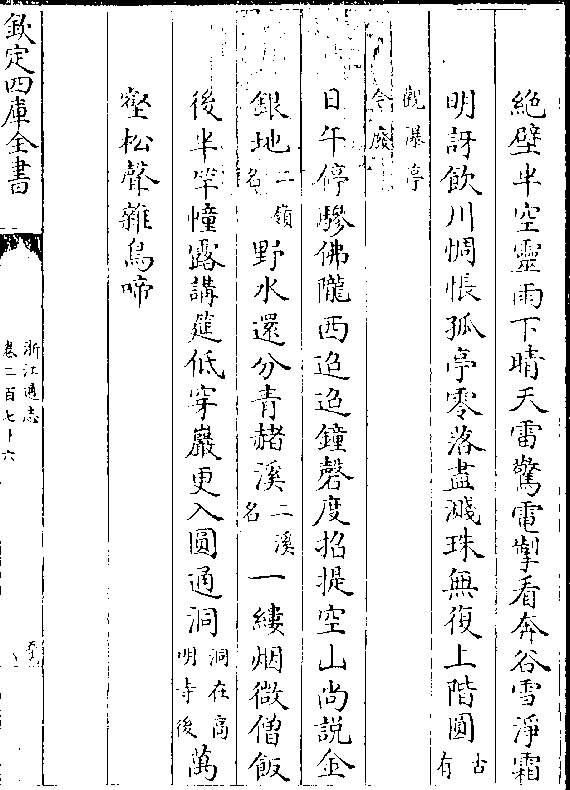 絶壁半空靈雨下晴天雷驚電掣看奔谷雪淨霜
明訝飲川惆悵孤亭零落盡濺珠無復上階圓古有
觀瀑亭今廢
日午停驂佛隴西迢迢鐘磬度招提空山尚説金
銀地二嶺名野水還分青赭溪二溪名一縷烟微僧飯
後半竿幢露講筵低穿巖更入圓通洞洞在高明寺後萬
壑松聲雜鳥啼
欽定四庫全書
浙江通志
卷二百七十六